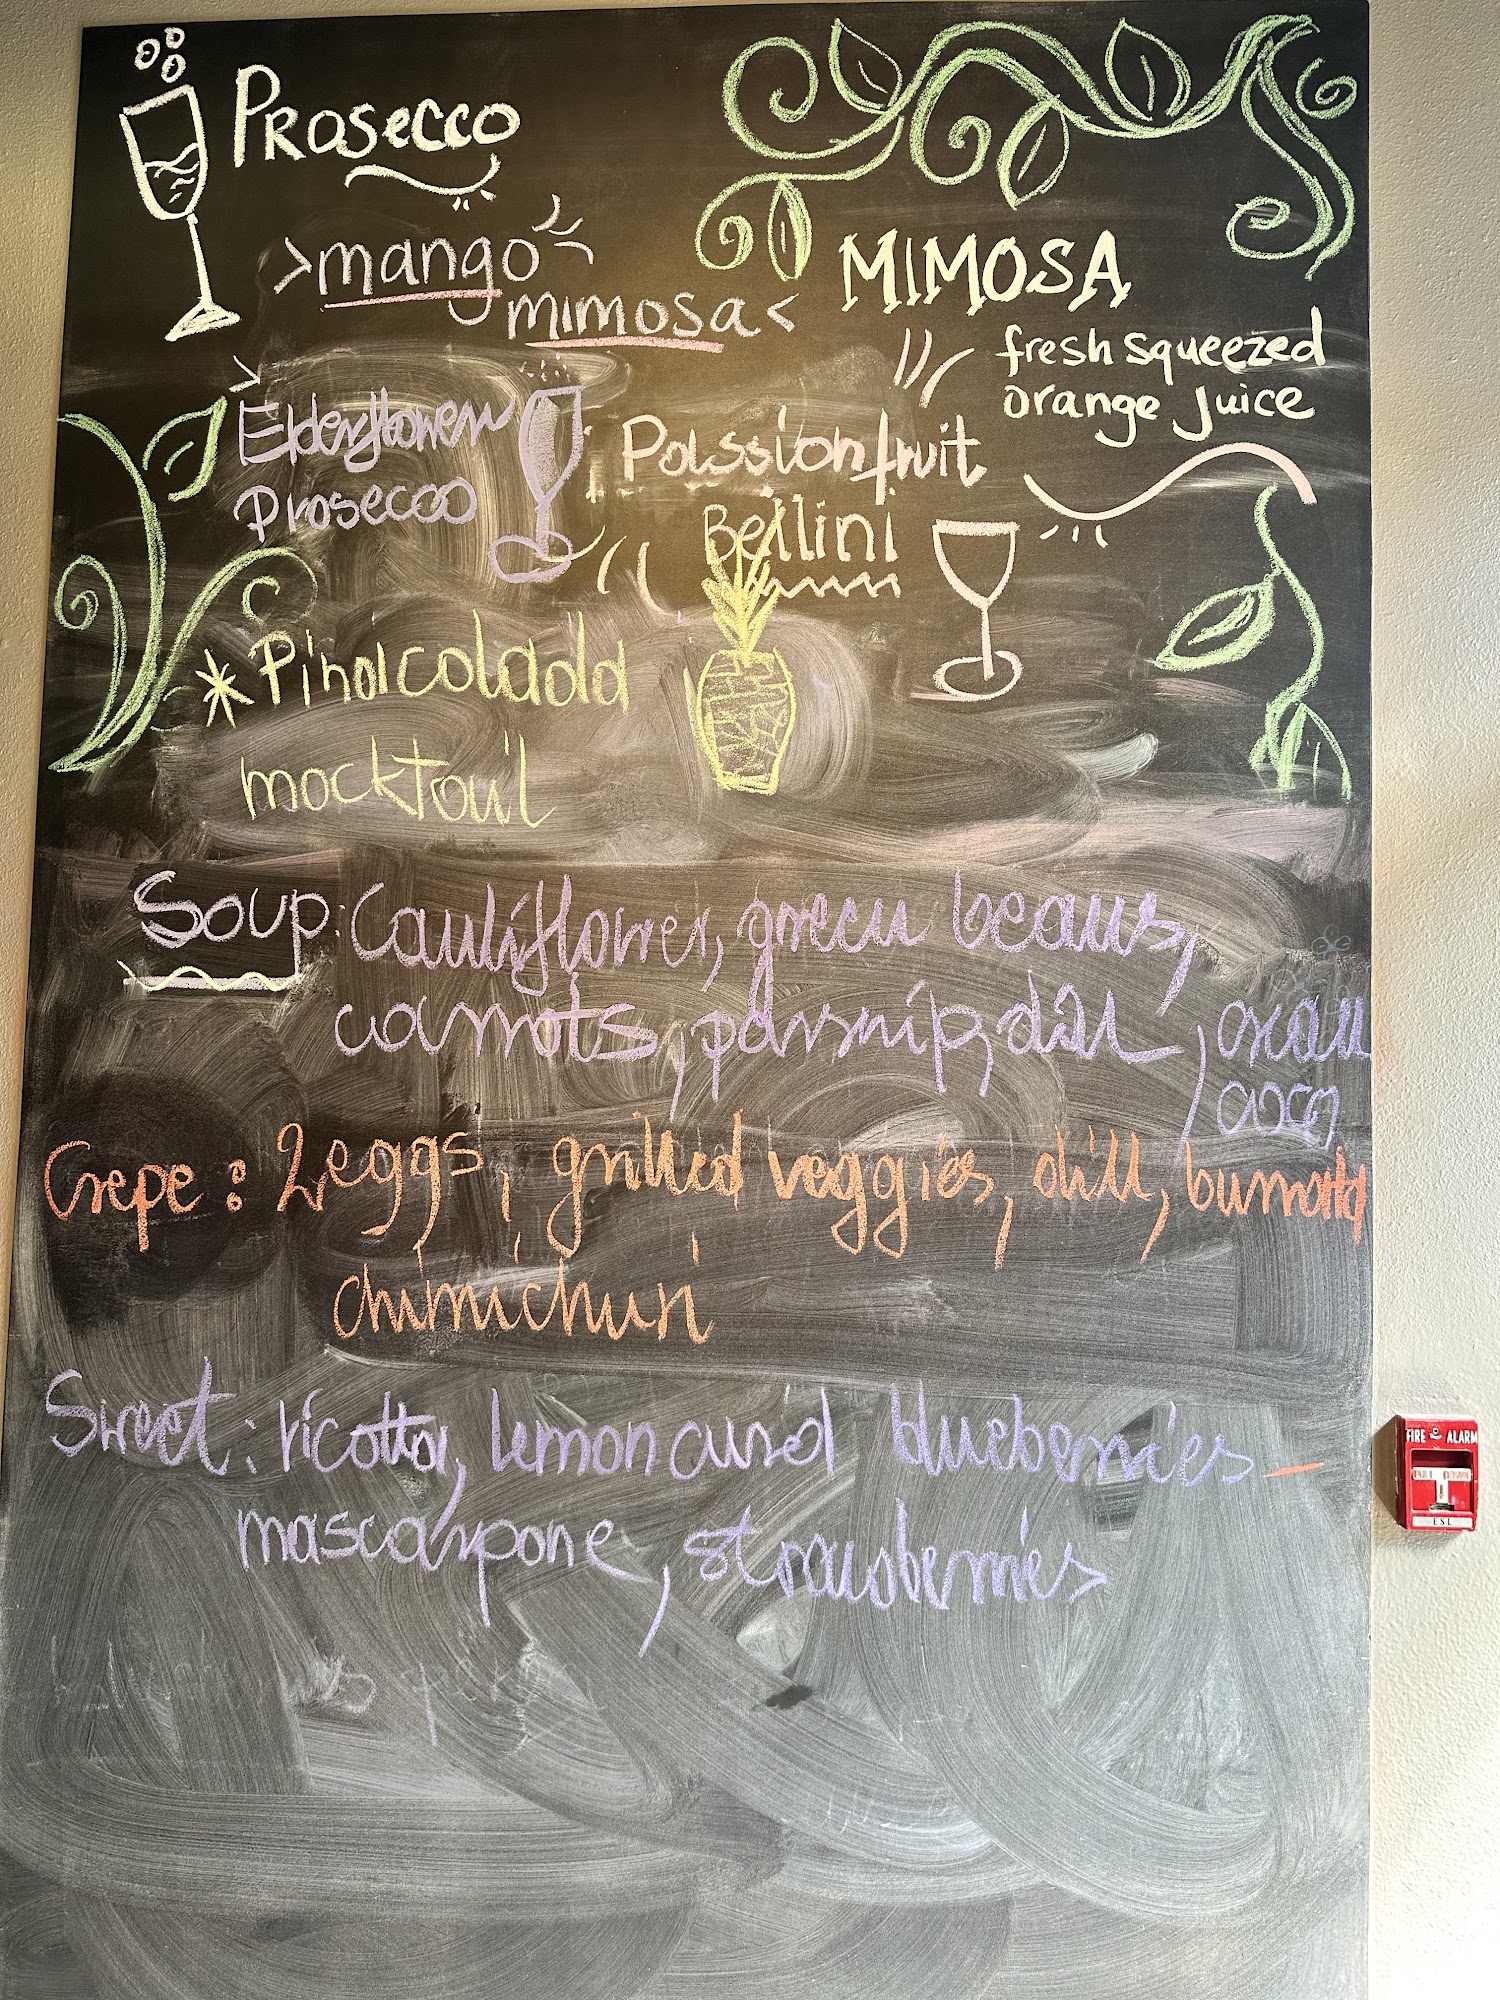 Prosecco
>mango
mimosa<
MIMOSA
fresh squeezed
orange juice
Elderflower
prosecco
Passionfruit
Bellini
*Pinacolada
mocktail
Soup: Cauliflower, green beans,
carrots, parsnip, dill,
Crepe: 2 eggs, grilled veggies, dill, burrata
chimichuri
Sweet: ricotta, lemon curd blueberries -
mascarpone, strawberries
FIRE ALARM
PULL DOWN
ESL